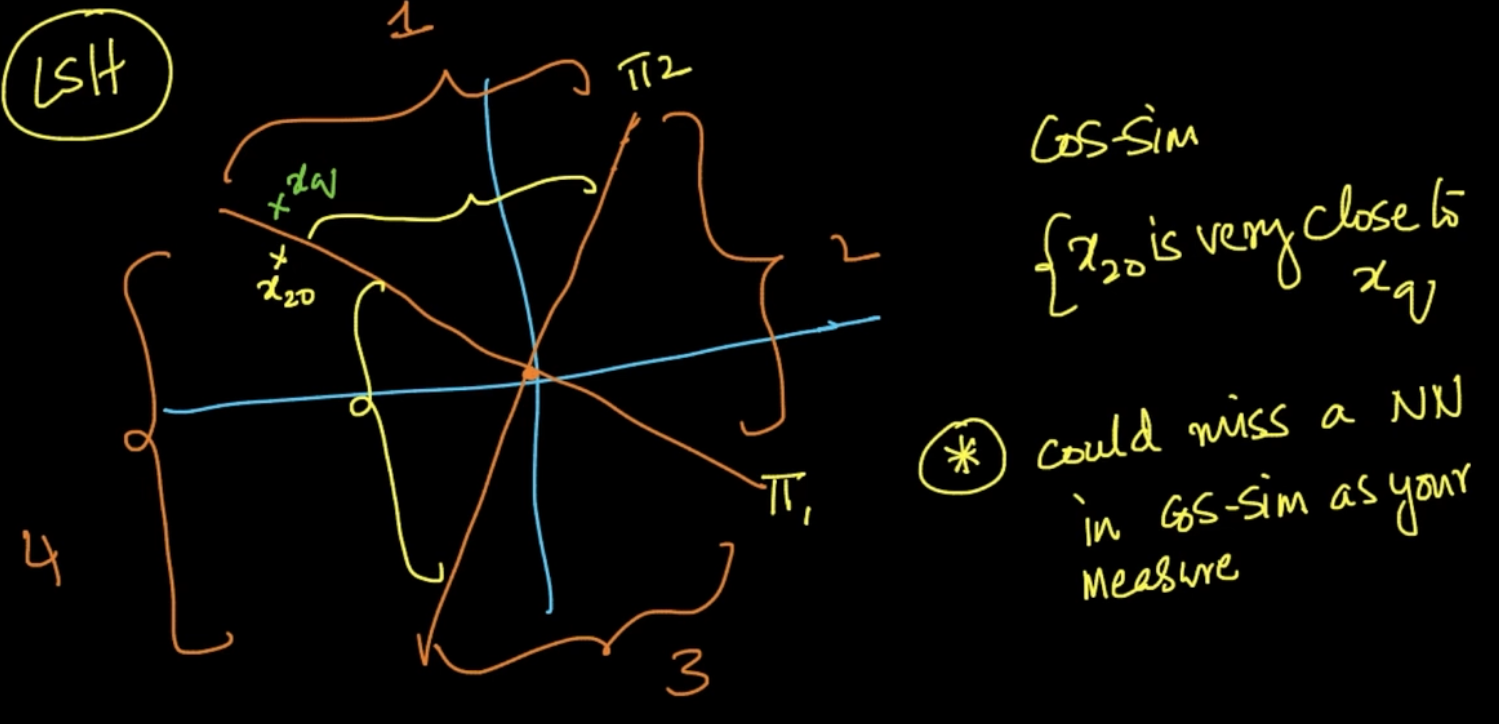 LSH
1
π2
xq
x20
2
4
π1
3
Cos-Sim
{x20 is very close to
xq
* could miss a NN
in Cos-Sim as your
Measure